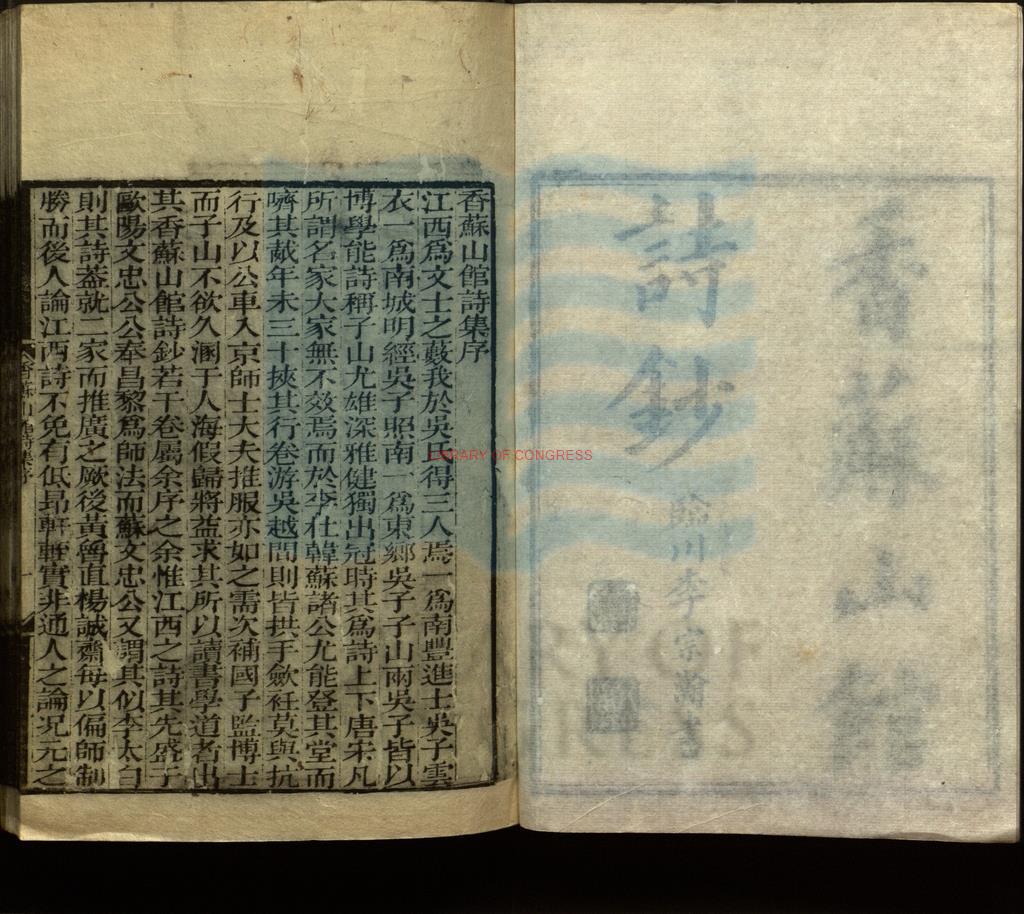 香蘇山館
詩鈔
臨川李宗瀚書
香蘇山館詩集序
江西爲文士之藪我於吳氏得三人焉一爲南豐進士吳子雲
衣一爲南城明經吳子照南一爲東鄉吳子子山兩吳子皆以
博學能詩稱子山尤雄深雅健獨出冠時其爲詩上下唐宋凡
所謂名家大家無不效焉而於李杜韓蘇諸公尤能登其堂而
嚌其胾年未三十挾其行卷游吳越間則皆拱手歛衽莫與抗
行及以公車入京師士大夫推服亦如之需次補國子監博士
而子山不欲久溷于人海假歸將益求其所以讀書學道者出
其香蘇山館詩鈔若干卷屬余序之余惟江西之詩其先盛于
歐陽文忠公公奉昌黎爲師法而蘇文忠公又謂其似李太白
則其詩葢就二家而推廣之厥後黃魯直楊誠齋每以偏師制
勝而後人論江西詩不免有低昻軒輊實非通人之論况元之
香蘇山館詩集序
一
LIBRARY OF CONGRESS